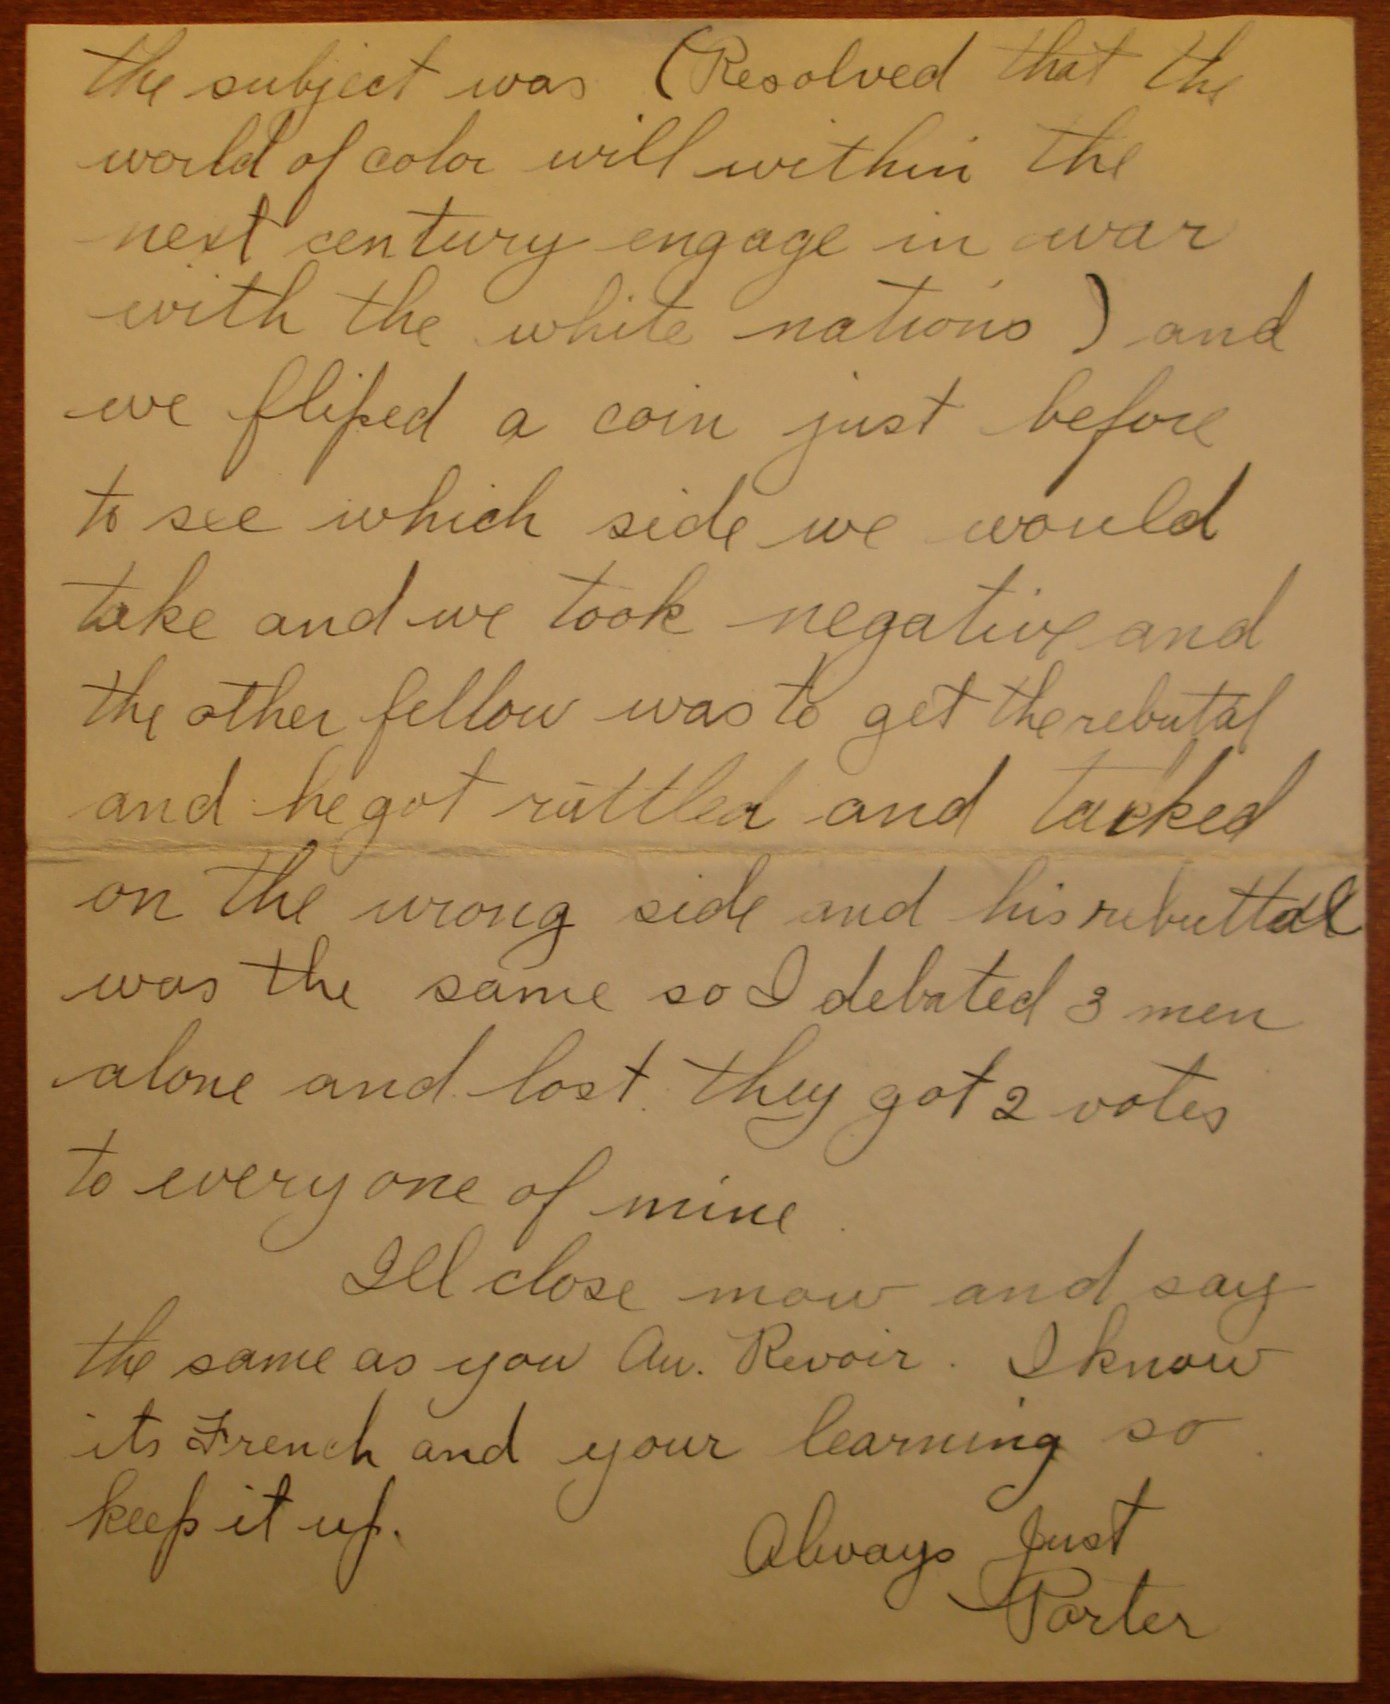 the subject was (Resolved that the
world of color will within the
next century engage in war
with the white nations) and
we fliped a coin just before
to see which side we would
take and we took negative and
the other fellow was to get the rebutal
and he got rattled and talked
on the wrong side and his rebuttal
was the same so I debated 3 men
alone and lost. they got 2 votes
to every one of mine
I'll close now and say
the same as you Au. Revoir. I know
its French and your learning so
keep it up.
Always Just
Porter